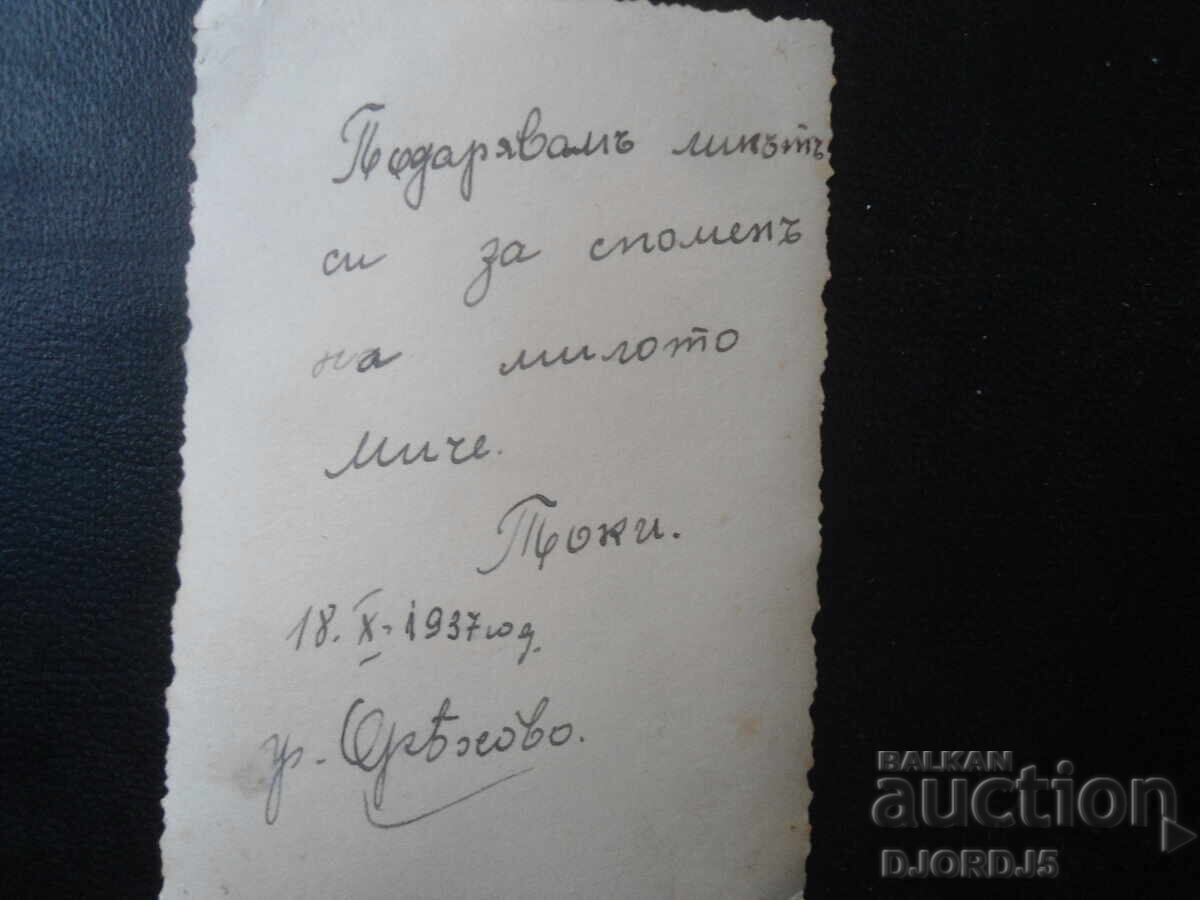 Подарявамъ ликътъ
си за споменъ
на милото
Миче.
Токи.
18. X. 1937 год.
гр. Орѣхово.
BALKAN
auction
DJORDJ5